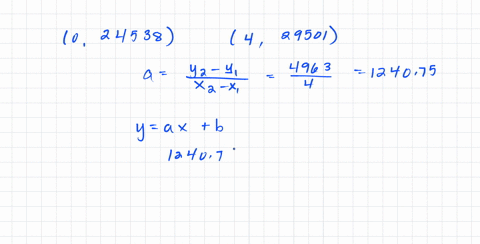 (0, 24538) (4, 29501)
a = y2 - y1 / x2 - x1 = 4963 / 4 = 1240.75
y = ax + b
1240.7